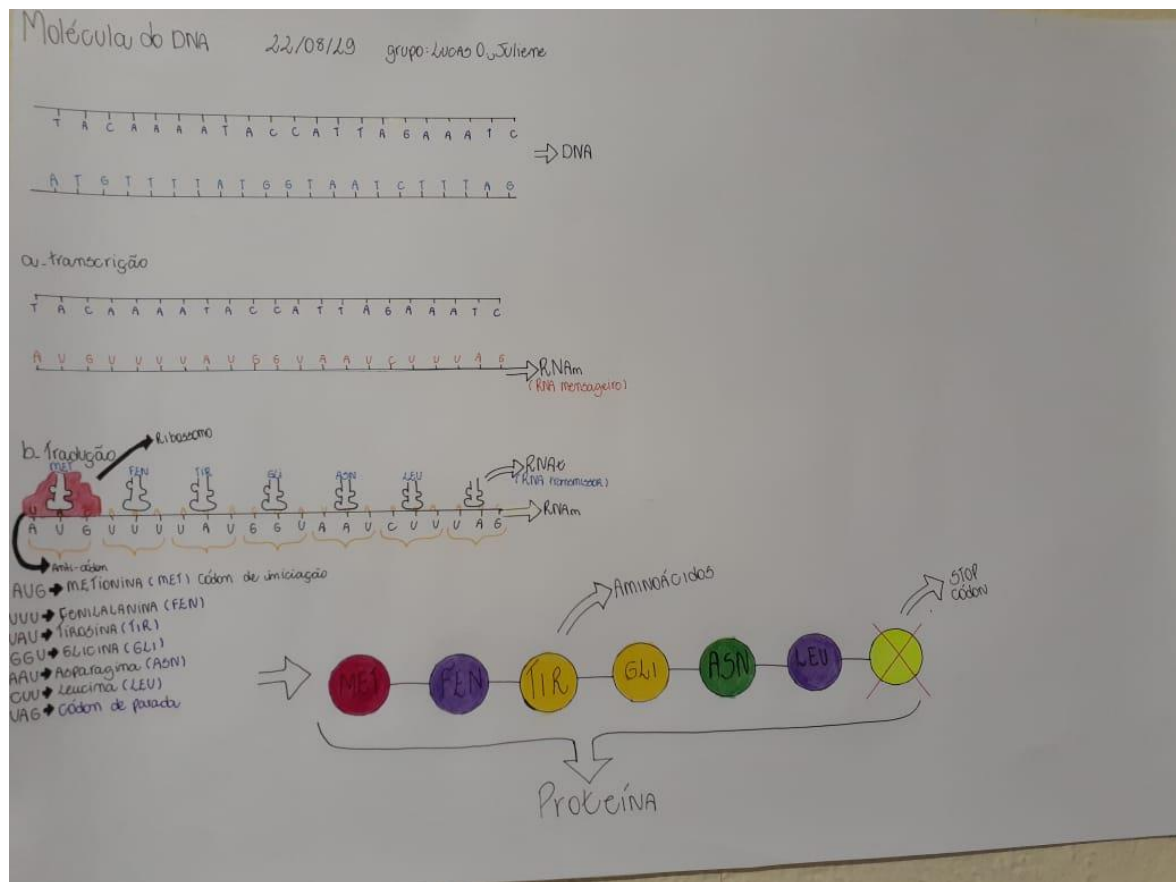 Molécula do DNA 22/08/19 grupo: Lucas O, Julieme
T A C A A A A T A C C A T T A G A A A T C
DNA
A T G T T T T A T G G T A A T C T T T A G
a-transcrição
T A C A A A A T A C C A T T A G A A A T C
A U G U U U U A U G G U A A U C U U U A G
RNAm
(RNA mensageiro)
b-Tradução
Ribossomo
MET FEN TIR GLI ASN LEU
RNAt
(RNA transmissor)
RNAm
A U G U U U U A U G G U A A U C U U U A G
Anti-códon
AUG → METIONINA (MET) códon de iniciação
UUU → FENILALANINA (FEN)
UAU → TIROSINA (TIR)
GGU → GLICINA (GLI)
AAU → Asparagina (ASN)
CUU → Leucina (LEU)
UAG → códon de parada
AMINOÁCIDOS
STOP
CÓDON
MET FEN TIR GLI ASN LEU
Proteína